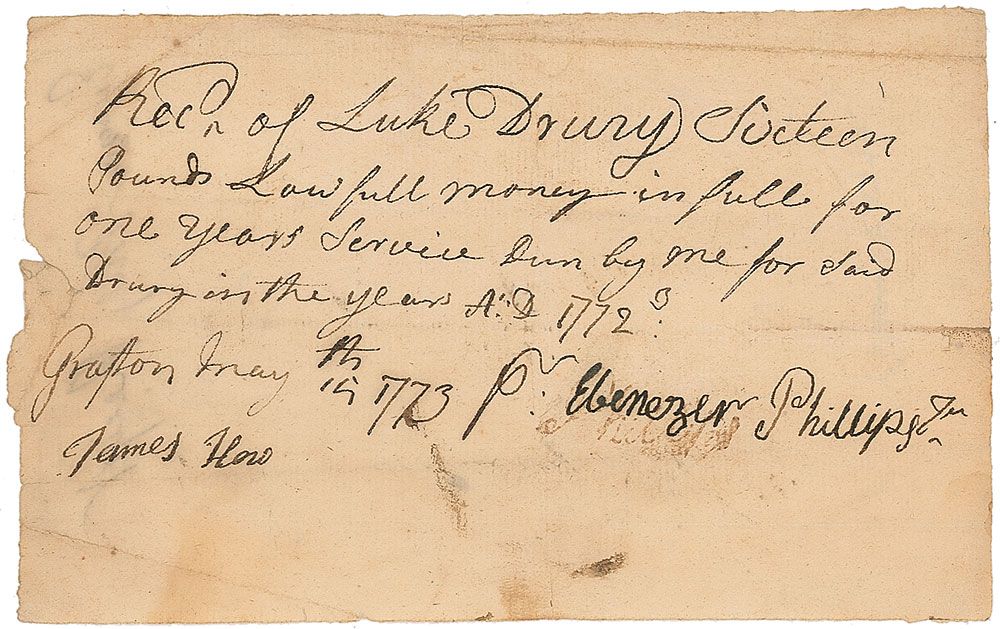 Recd of Luke Drury Sixteen
Pounds Lawfull money in full for
one years Service Dun by me for said
Drury in the years A:D 1772 3
Grafton May 15th 1773 Pr: Ebenezer Phillips Jun
James How